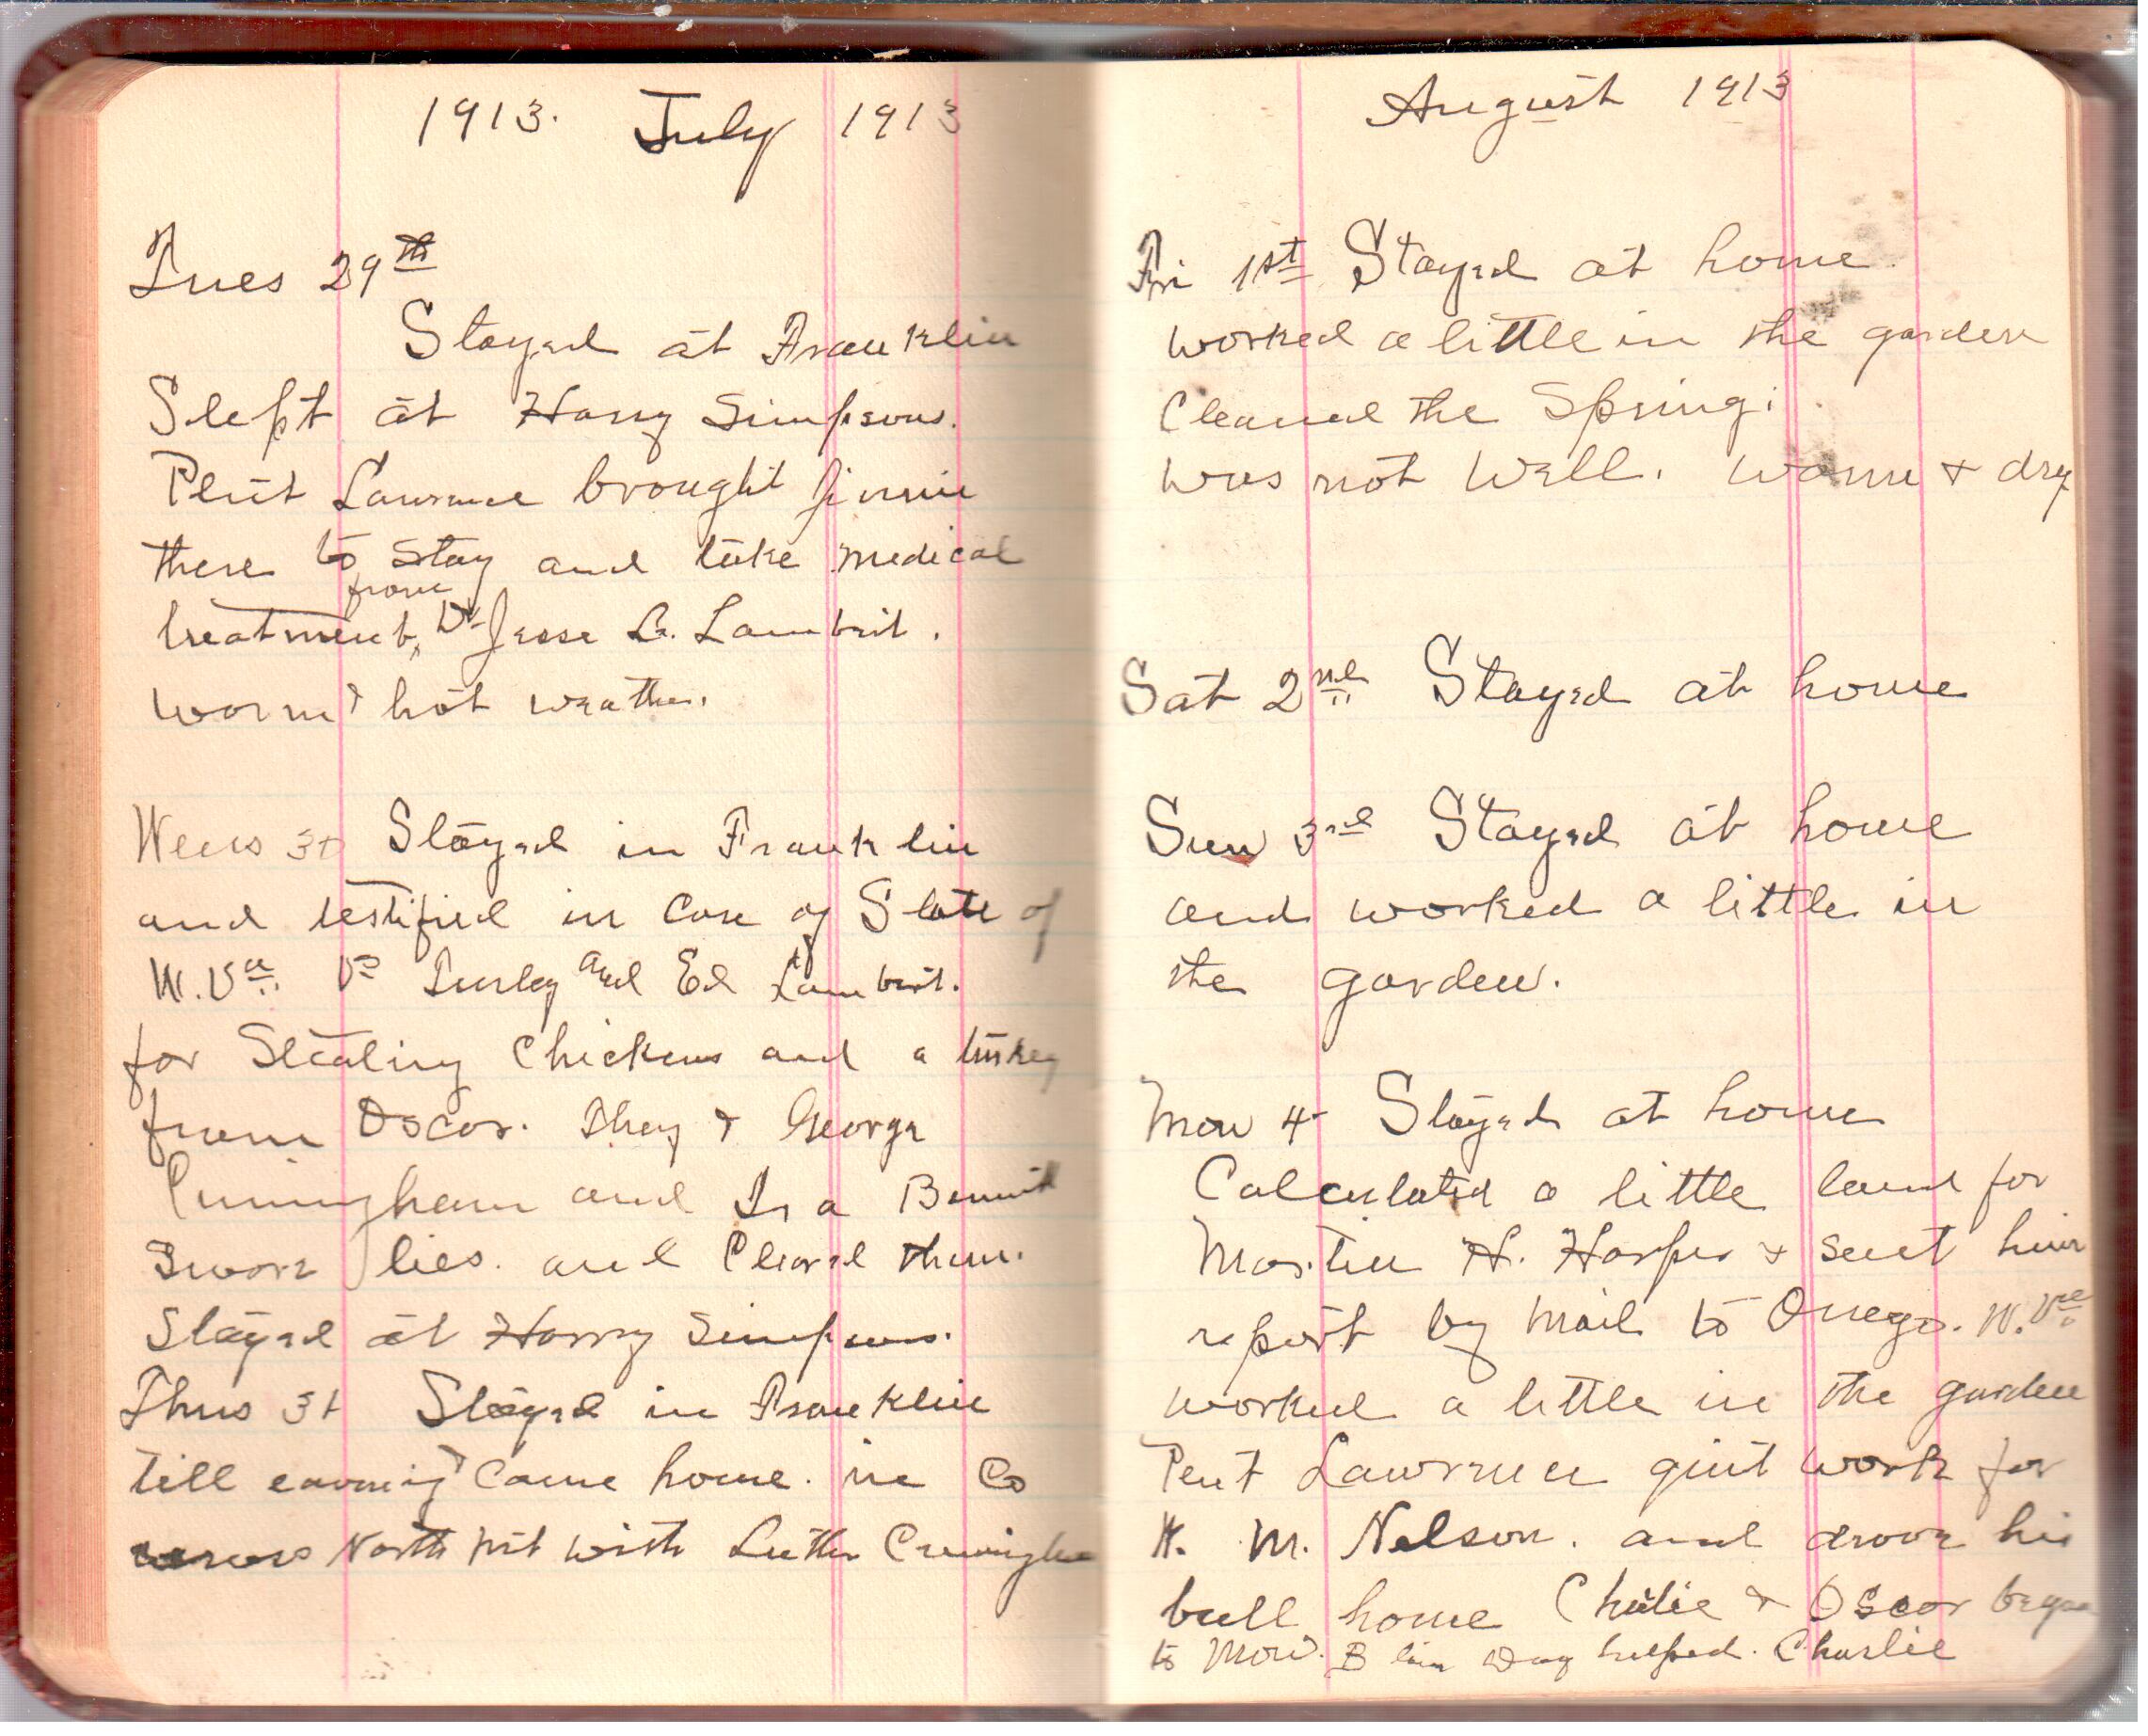 1913. July 1913
Tues 29th
Stayed at Franklin
Slept at Harry Simpsons.
Lawrence brought Jinnie
there to stay and take medical
from
treatment, Dr Jesse B. Lambert.
warm & hot weather.
Weds 30 Stayed in Franklin
and testified in case of State of
W. Va. Vs Turley and Ed Lambert.
for Stealing Chickens and a turkey
from Oscar. They & George
Cuningham and Ira Bennett
swore lies. and Cleared them.
Stayed at Harry Simpsons.
Thurs 31 Stayed in Franklin
till eavning & Came home. in Co
across North mt with Luther Cuningham
August 1913
Fri 1st Stayed at home.
worked a little in the garden
Cleaned the Spring;
was not Well. warm & dry
Sat 2nd Stayed at home
Sun 3rd Stayed at home
and worked a little in
the garden.
Mon 4 Stayed at home
Calculated a little land for
Martin H. Harper & sent him
report by mail to Onego. W. Va.
worked a little in the garden
Pent Lawrence quit work for
H. M. Nelson. and drove his
bull home Charlie & Oscar began
to Mow. Day helped. Charlie